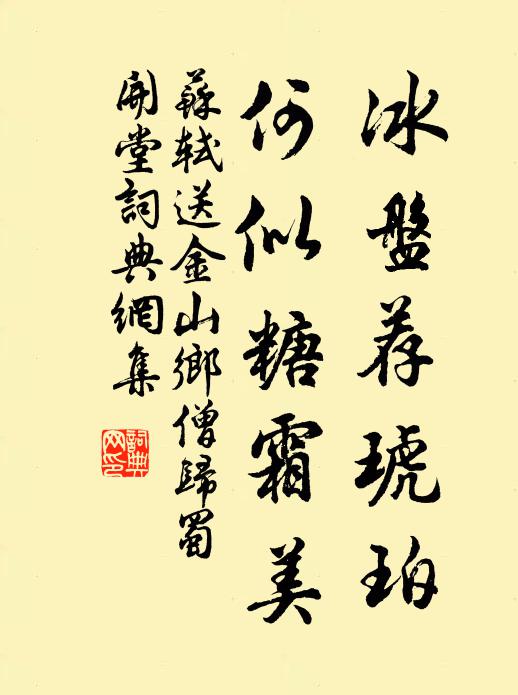 冰盤荐琥珀
何似糖霜美
蘇軾送金山鄉僧歸蜀
開堂詞典網集
詞典
网印